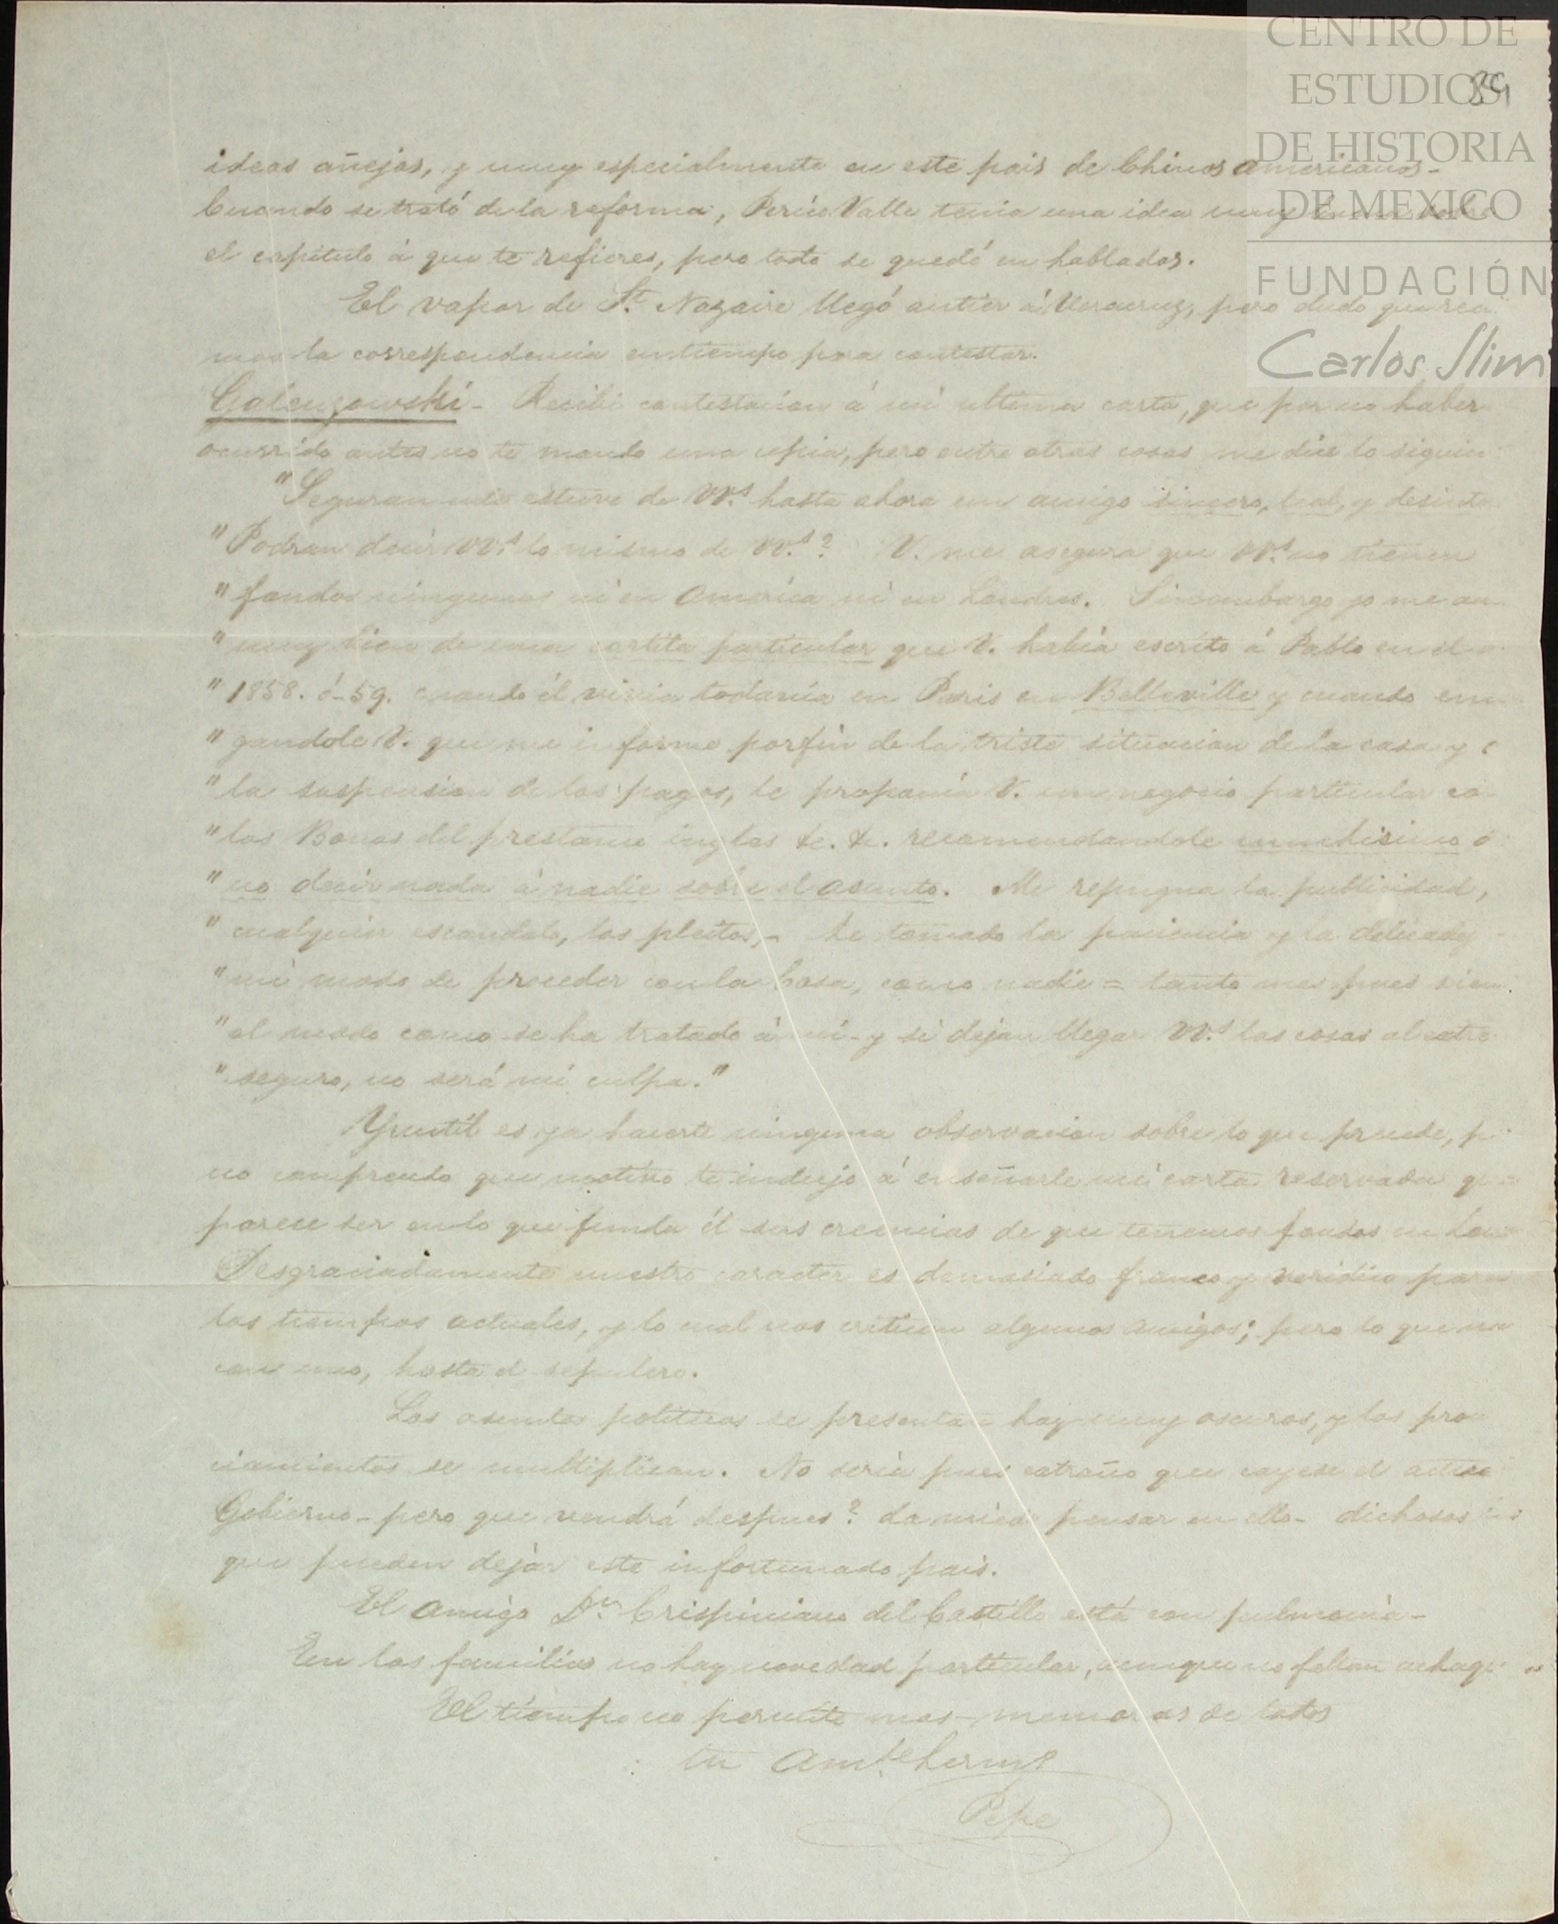 CENTRO DE
ESTUDIOS
DE HISTORIA
DE MEXICO
FUNDACIÓN
Carlos Slim
39
ideas añejas, y muy especialmente en este pais de Chinos Americanos-
Cuando se trató de la reforma, Perico Valle tenia una idea muy
el capitulo á que te refieres, pero todo se quedó en hablados.
El vapor de St. Nazaire llegó antier á Veracruz, pero dudo que reci
mos la correspondencia en tiempo para contestar.
Galenzowski- Recibi contestacion á mi ultima carta, que por no haber
ocurrido antes no te mando una copia, pero entre otras cosas me dice lo siguien
"Seguramente estuve de VVs. hasta ahora un amigo sincero, leal, y desinte
"Podran decir VVs. lo mismo de VVs.? V. me asegura que VVs. no tienen
"fondos ningunos ni en America ni en Londres. Sinembargo yo me acu
"muy bien de una cartita particular que V. habia escrito á Pablo en el a
"1858. ó-59. cuando él vivia todavia en Paris en Belleville y cuando
"gandole V. que me informe porfin de la triste situacion de la casa y
"la suspension de los pagos, le proponia V. un negocio particular co
"los Bonos del prestamo ingles &c. &c. recomendandole muchisimo
"no decir nada á nadie sobre el asunto. Me repugna la publicidad,
"cualquier escandalo, los pleitos,- he tomado la paciencia y la delicadez
"mi modo de proceder con la Casa, como nadie = tanto mas pues
"el modo como se ha tratado á mi- y si dejan llegar VVs. las cosas al
"seguro, no será mi culpa."
Ynutil es ya hacerte ninguna observacion sobre lo que precede, p
no comprendo que motivo te indujo á enseñarle mi carta reservada q
parece ser en lo que funda él sus creencias de que tenemos fondos en Lon
Desgraciadamente nuestro caracter es demasiado franco y veridico para
los tiempos actuales, y lo cual nos critican algunos amigos; pero lo que
con uno, hasta el sepulcro.
Los asuntos politicos se presentan hoy muy oscuros, y los pro
ciamientos se multiplican. No seria pues estraño que cayese el actual
Gobierno- pero que vendrá despues? da miedo pensar en ello- dichosos los
que pueden dejar este infortunado pais.
El amigo Dn. Crispiniano del Castillo está con pulmonia-
En las familias no hay novedad particular, aunque no faltan achaques
El tiempo no permite mas- memorias de todos
tu amte. hermo
Pepe